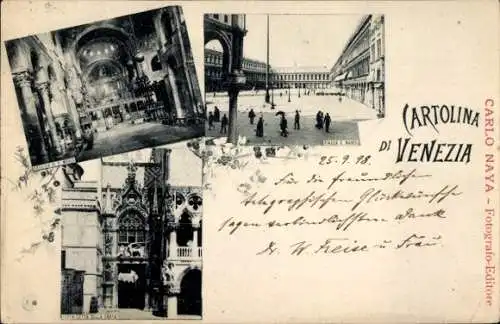 CARTOLINA
DI VENEZIA
25.9.98.
Für die freundlichen
telegraphischen Glückwünsche
sagen verbindlichsten Dank
Dr. W. Freise u Frau.
CARLO NAYA – Fotografo-Editore